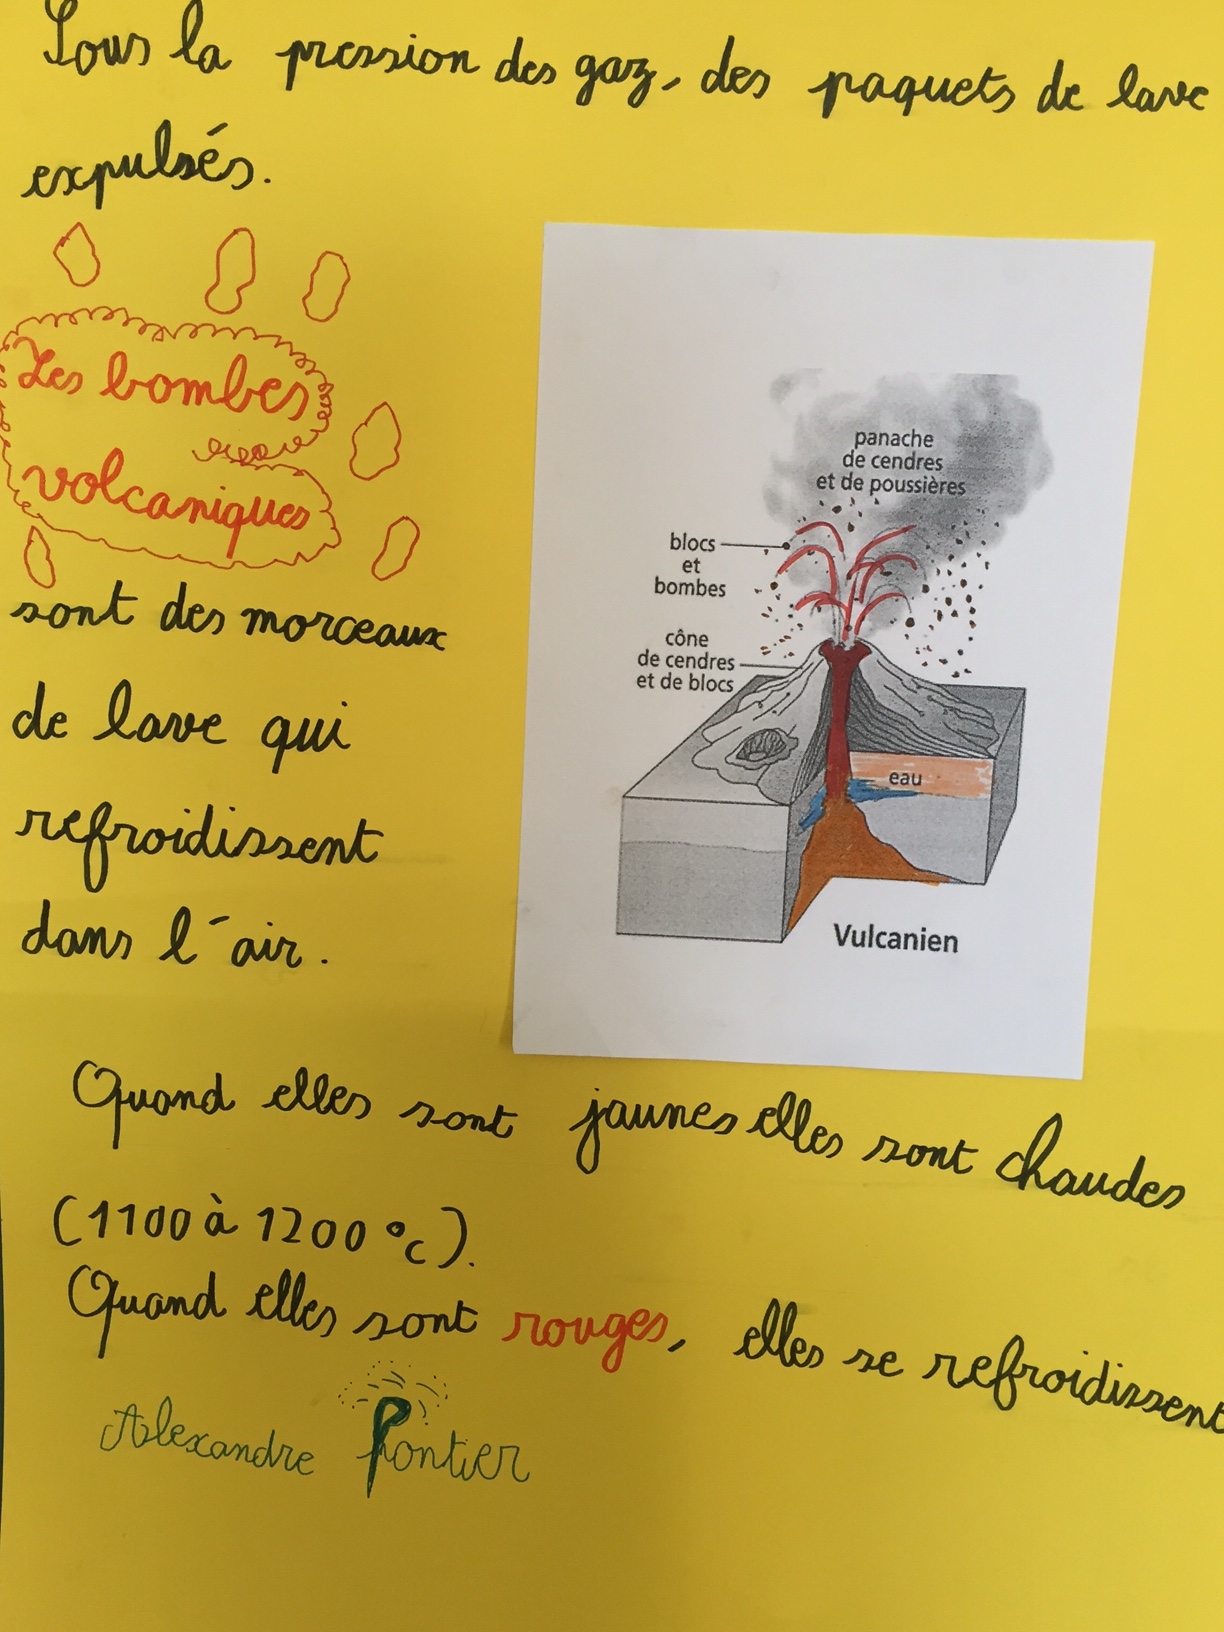 Sous la pression des gaz, des paquets de lave
expulsés.
Les bombes
volcaniques
sont des morceaux
de lave qui
refroidissent
dans l'air.
panache
de cendres
et de poussières
blocs
et
bombes
cône
de cendres
et de blocs
eau
Vulcanien
Quand elles sont jaunes elles sont chaudes
(1100 à 1200 °c).
Quand elles sont rouges, elles se refroidissent
Alexandre Pontier